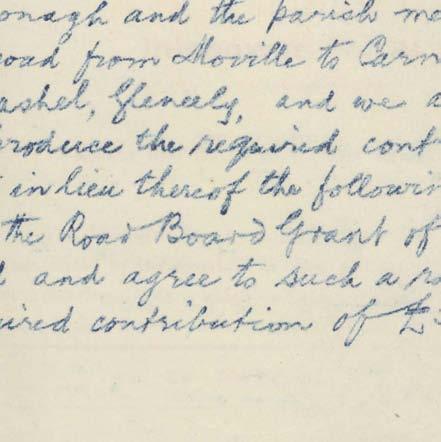 onagh and the parish me
oad from Moville to Carn
ashel, Gleneely, and we a
roduce the required cont
in lieu thereof the followin
the Road Board Grant of
and agree to such a ra
uired contribution of £